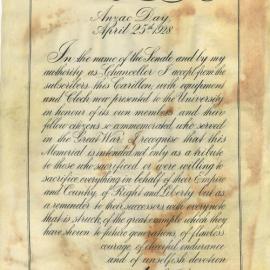 Anzac Day,
April 25th 1928
In the name of the Senate and by my
authority as Chancellor I accept from the
subscribers this Carillon, with equipment
and Clock now presented to the University
in honour of its own members and their
fellow citizens so commemorated, who served
in the Great War. I recognise that this
Memorial is intended not only as a tribute
to those who sacrificed or were willing to
sacrifice everything in behalf of their Empire
and Country, of Right and Liberty but as
a reminder to their successors with every note
that is struck, of the great example which they
have shown to future generations, of flawless
courage, of cheerful endurance
and of unselfish devotion